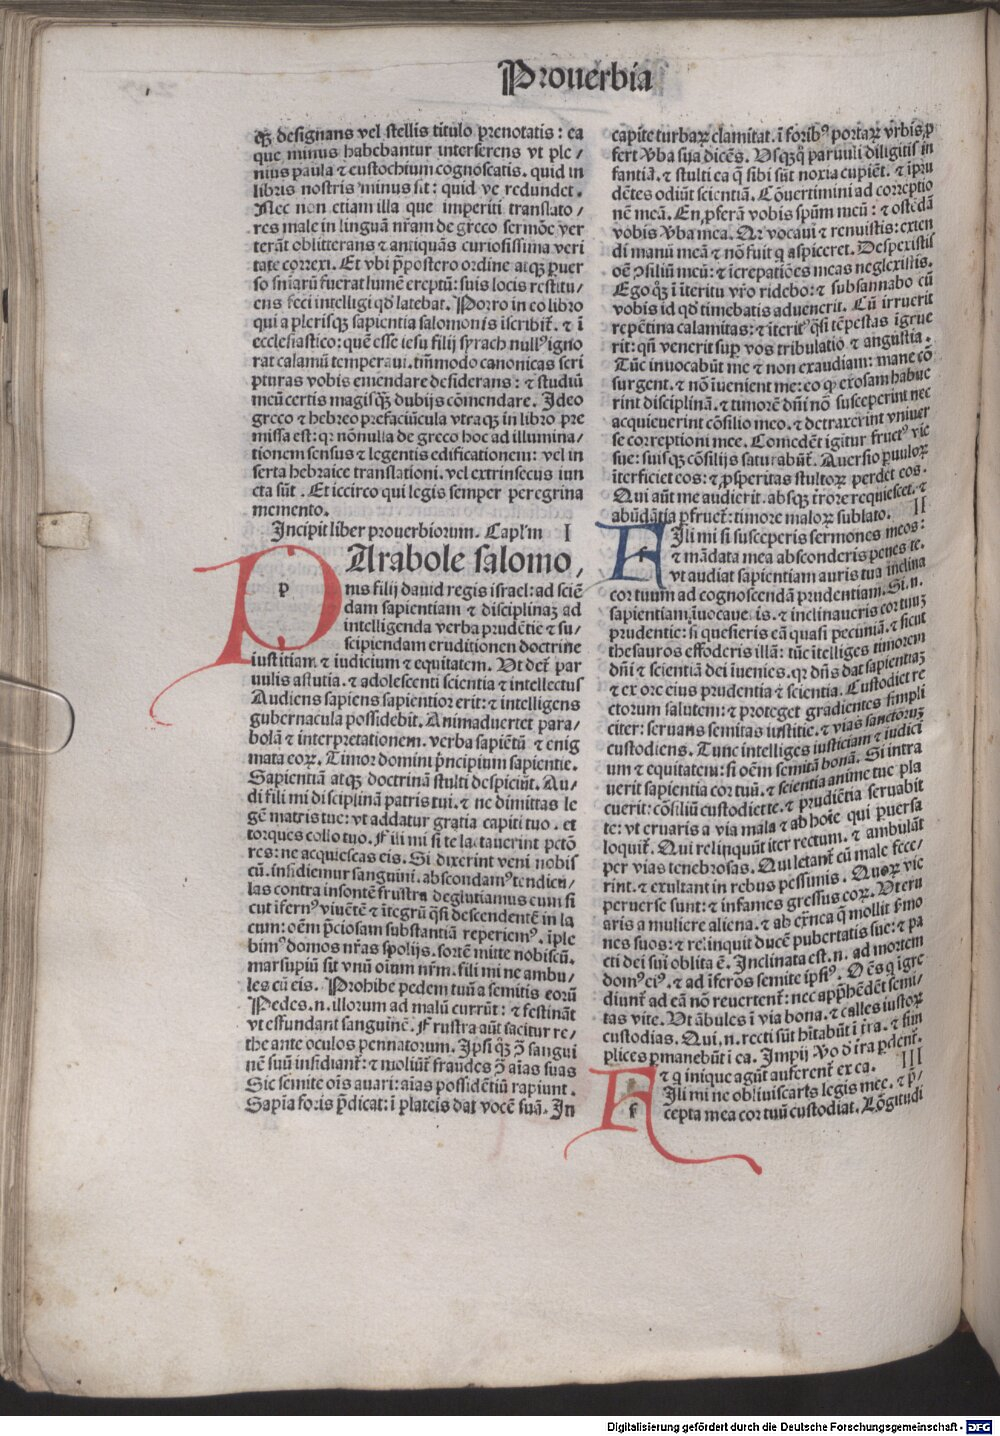 Prouerbia
qꝫ designans vel stellis titulo prenotatis : ea
que minus habebantur interserens vt ple /
nius paula ⁊ eustochium cognoscatis. quid in
libris nostris minus sit : quid ve redundet.
Nec non etiam illa que imperiti translato /
res male in linguā nr̄am de greco sermōe ver
terāt oblitterans ⁊ antiquās curiosissima veri
tate correxi. Et vbi p̄postero ordine atqꝫ ꝑuer
so sniarū fuerat lumē ereptū : suis locis restitu /
ens feci intelligi qd̓ latebat. Porro in eo libro
qui a plerisqꝫ sapientia salomonis iscribit̃. ⁊ ī
ecclesiastico: quē esse iesu filij syrach null⁹ igno
rat calamū temperaui. tm̄modo canonicas scri
pturas vobis emendare desiderans : ⁊ studiū
meū certis magisqꝫ dubijs cōmendare. Ideo
greco ⁊ hebreo prefaciūcula vtraqꝫ in libro pre
missa est: qr nōnulla de greco hoc ad illumina /
tionem sensus ⁊ legentis edificationem: vel in
serta hebraice translationi. vel extrinsecus iun
cta sūt . Et iccirco qui legis semper peregrina
memento.
Incipit liber prouerbiorum. Capl'm I
p
PArabole salomo,
nis filij dauid regis israel: ad sciē
dam sapientiam ⁊ disciplinaꝫ ad
intelligenda verba prudētie ⁊ su /
scipiendam eruditionem doctrine
iustitiam ⁊ iudicium ⁊ equitatem. Vt det̃ par
uulis astutia. ⁊ adolescenti scientia ⁊ intellectus
Audiens sapiens sapientior erit: ⁊ intelligens
gubernacula possidebit. Animaduertet para /
bolā ⁊ interpretationem. verba sapiētū ⁊ enig
mata eoꝝ. Timor domini p̄ncipium sapientie.
Sapientiā atqꝫ doctrinā stulti despiciūt. Au /
di fili mi disciplinā patris tui. ⁊ ne dimittas le
gē matris tue: vt addatur gratia capiti tuo . et
torques collo tuo. Fili mi si te lactauerint pctō
res: ne acquiescas eis. Si dixerint veni nobis
cū. insidiemur sanguini. abscondam⁹ tendicu /
las contra insontē frustra deglutiamus eum si
cut īfern⁹ viuētē ⁊ ītegrū qsi descendentē in la
cum: oēm p̄ciosam substantiā reperiem⁹. īple
bim⁹ domos nr̄as spolijs. sortē mitte nobiscū.
marsupiū sit vnū oīum nr̄m. fili mi ne ambu /
les cū eis. Prohibe pedem tuū a semitis eorū
Pedes .n. illorum ad malū currūt : ⁊ festināt
vt effundant sanguinē. Frustra aūt iacitur re /
the ante oculos pennatorum. Ipsi qꝫ ꝯ̄ sangui
nē suū insidiant̃: ⁊ moliūt̃ fraudes ꝯ̄ aīas suas
Sic semite oīs auari: aīas possidētiū rapiunt.
Sapīa foris p̄dicat: ī plateis dat vocē suā. In
capite turbaꝝ clamitat. ī forib⁹ portaꝝ vrbis ꝓ
fert v̓ba sua dicēs. Vsqꝫqꝫ paruuli diligitis in
fantiā. ⁊ stulti ea q̄ sibi sūt noxia cupiēt. ⁊ īpru
dētes odiūt scientiā. Cōuertimini ad correptio
nē meā. En ꝓferā vobis spūm meū : ⁊ ostēdā
vobis v̓ba mea. Qr vocaui ⁊ renuistis: exten
di manū meā ⁊ nō fuit q aspiceret. Despexistis
oē ꝯsiliū meū: ⁊ īcrepatiōes meas neglexistis.
Ego qꝫ ī īteritu vr̄o ridebo: ⁊ subsannabo cū
vobis id qd̓ timebatis aduenerit. Cū irruerit
repentina calamitas: ⁊ īterit⁹ qsi tēpestas īgrue
rit: qn̄ venerit sup vos tribulatio ⁊ angustia.
Tūc inuocabūt me ⁊ non exaudiam: mane cō
surgent. ⁊ nō īuenient me: eo ꝙ exosam habue
rint disciplinā. ⁊ timorē dn̄i nō susceperint nec
acquieuerint cōsilio meo. ⁊ detraxerint vniuer
se correptioni mee. Comedēt igitur fruct⁹ vie
sue: suisqꝫ cōsilijs saturabūt̃. Auersio ꝑuuloꝝ
īterficiet eos: ⁊ ꝓsperitas stultoꝝ perdet eos.
Qui aūt me audierit. absqꝫ t̓rore requiescet. ⁊
abūdātia ꝑfruet̃: timore maloꝝ sublato. II
FIli mi si susceperis sermones meos:
f
⁊ mādata mea absconderis penes te.
vt audiat sapientiam auris tua inclina
cor tuum ad cognoscendā prudentiam. Si .n.
sapientiam īuocaueris. ⁊ inclinaueris cor tuuꝫ
prudentie: si quesieris eā quasi pecuniā. ⁊ sicut
thesauros effoderis illā: tūc ītelliges timorem
dn̄i ⁊ scientiā dei īuenies. qr dn̄s dat sapientiaꝫ
⁊ ex ore eius prudentia ⁊ scientia. Custodiet re
ctorum salutem: ⁊ proteget gradientes simpli
citer: seruans semitas iustitie. ⁊ vias sanctoruꝫ
custodiens. Tunc intelliges iusticiam ⁊ iudici
um ⁊ equitatem: si oēm semitā bonā. Si intra
uerit sapientia cor tuū. ⁊ scientia anime tue pla
cuerit: cōsiliū custodiet te. ⁊ prudētia seruabit
te: vt eruaris a via mala ⁊ ab hoīe qui ꝑuersa
loquit̃. Qui relinquūt iter rectum. ⁊ ambulāt
per vias tenebrosas. Qui letant̃ cū male fece /
rint. ⁊ exultant in rebus pessimis. Quoꝝ vie
peruerse sunt: ⁊ infames gressus eoꝝ. Vt eru
aris a muliere aliena. ⁊ ab ext̄nea q̄ mollit s̓mo
nes suos: ⁊ relinquit ducē pubertatis sue: ⁊ pa
cti dei sui oblita ē. Inclinata est .n. ad mortem
dom⁹ ei⁹. ⁊ ad īferos semite ipsi⁹. Oēs q īgre
diunt̃ ad eā nō reuertent̃: nec apphēdēt semi /
tas vite. Vt ābules ī via bona. ⁊ calles iustoꝝ
custodias. Qui .n. recti sūt hītabūt ī t̓ra. ⁊ sim
plices ꝑmanebūt ī ea. Impij v̓o d̓ t̓ra ꝑdent̃.
⁊ q inique agūt auferent̃ ex ea. III
FIli mi ne obliuiscaris legis mee. ⁊ p̄ /
f
cepta mea cor tuū custodiat. Lōgitudi
Digitalisierung gefördert durch die Deutsche Forschungsgemeinschaft - DFG